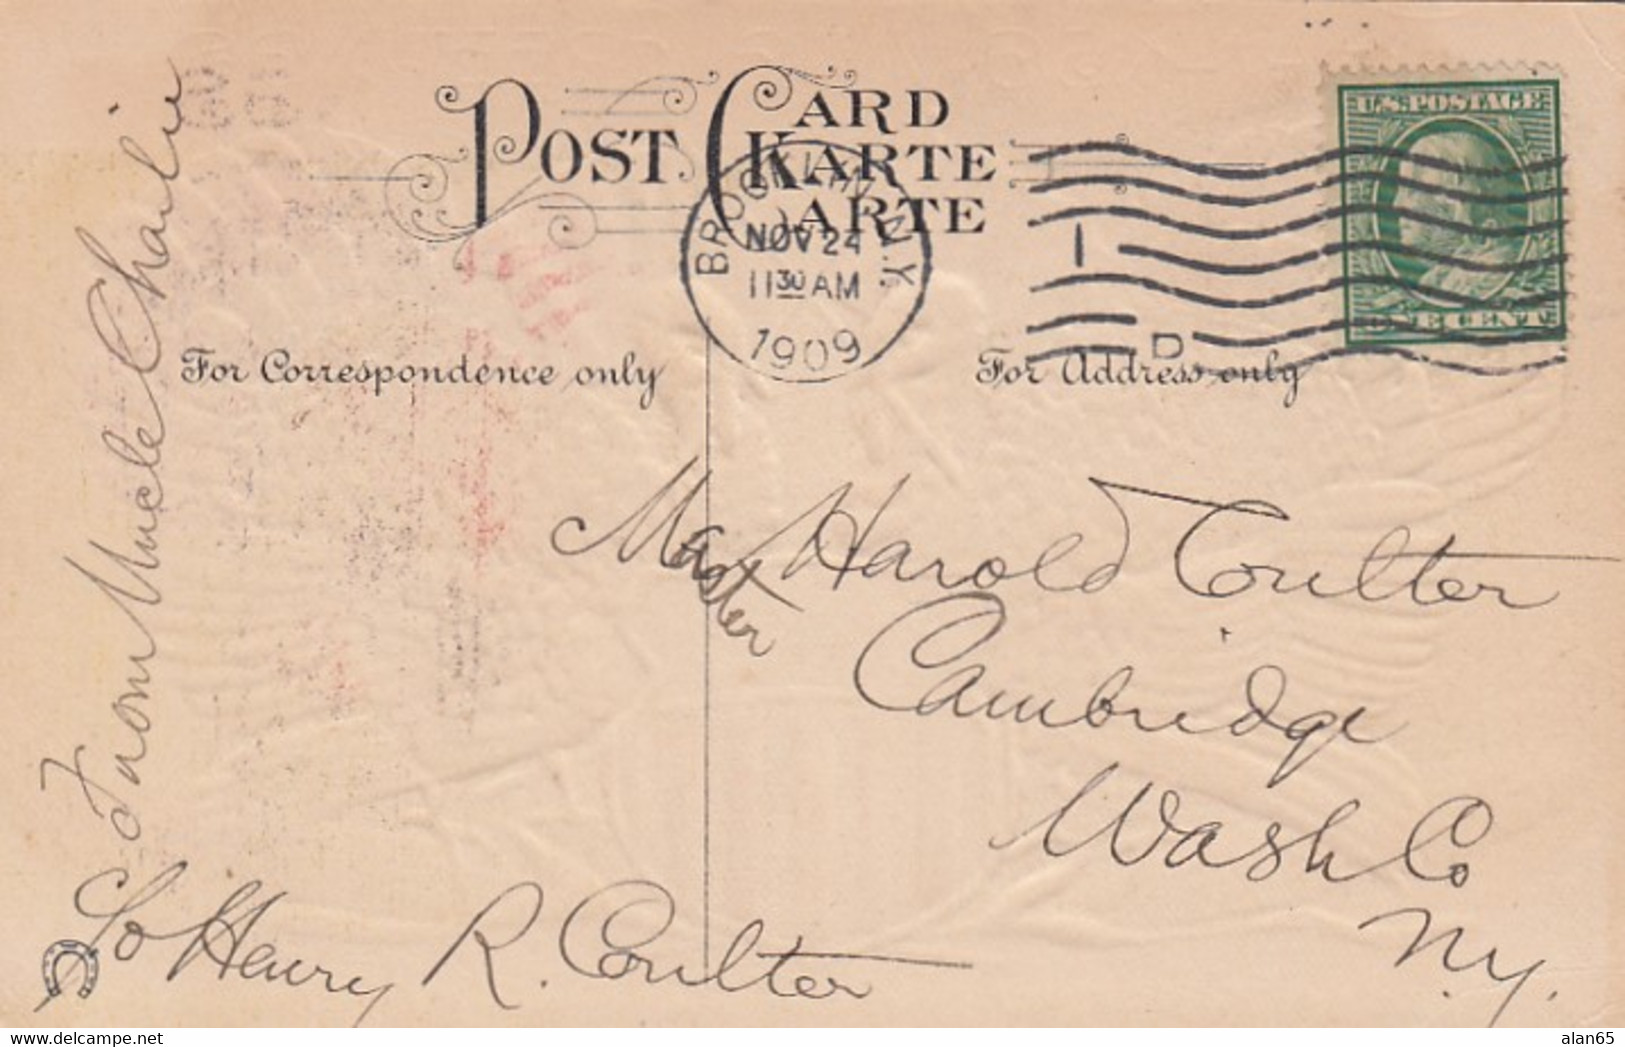 POST CARD
KARTE
CARTE
BROOKLYN, N.Y.
NOV 24
11 30 AM
1909
1
D
U.S. POSTAGE
ONE CENT
For Correspondence only
For Address only
From Uncle Charlie
Master Harold Coulter
Cambridge
Wash Co
N.Y.
C/o Henry R. Coulter
alan65